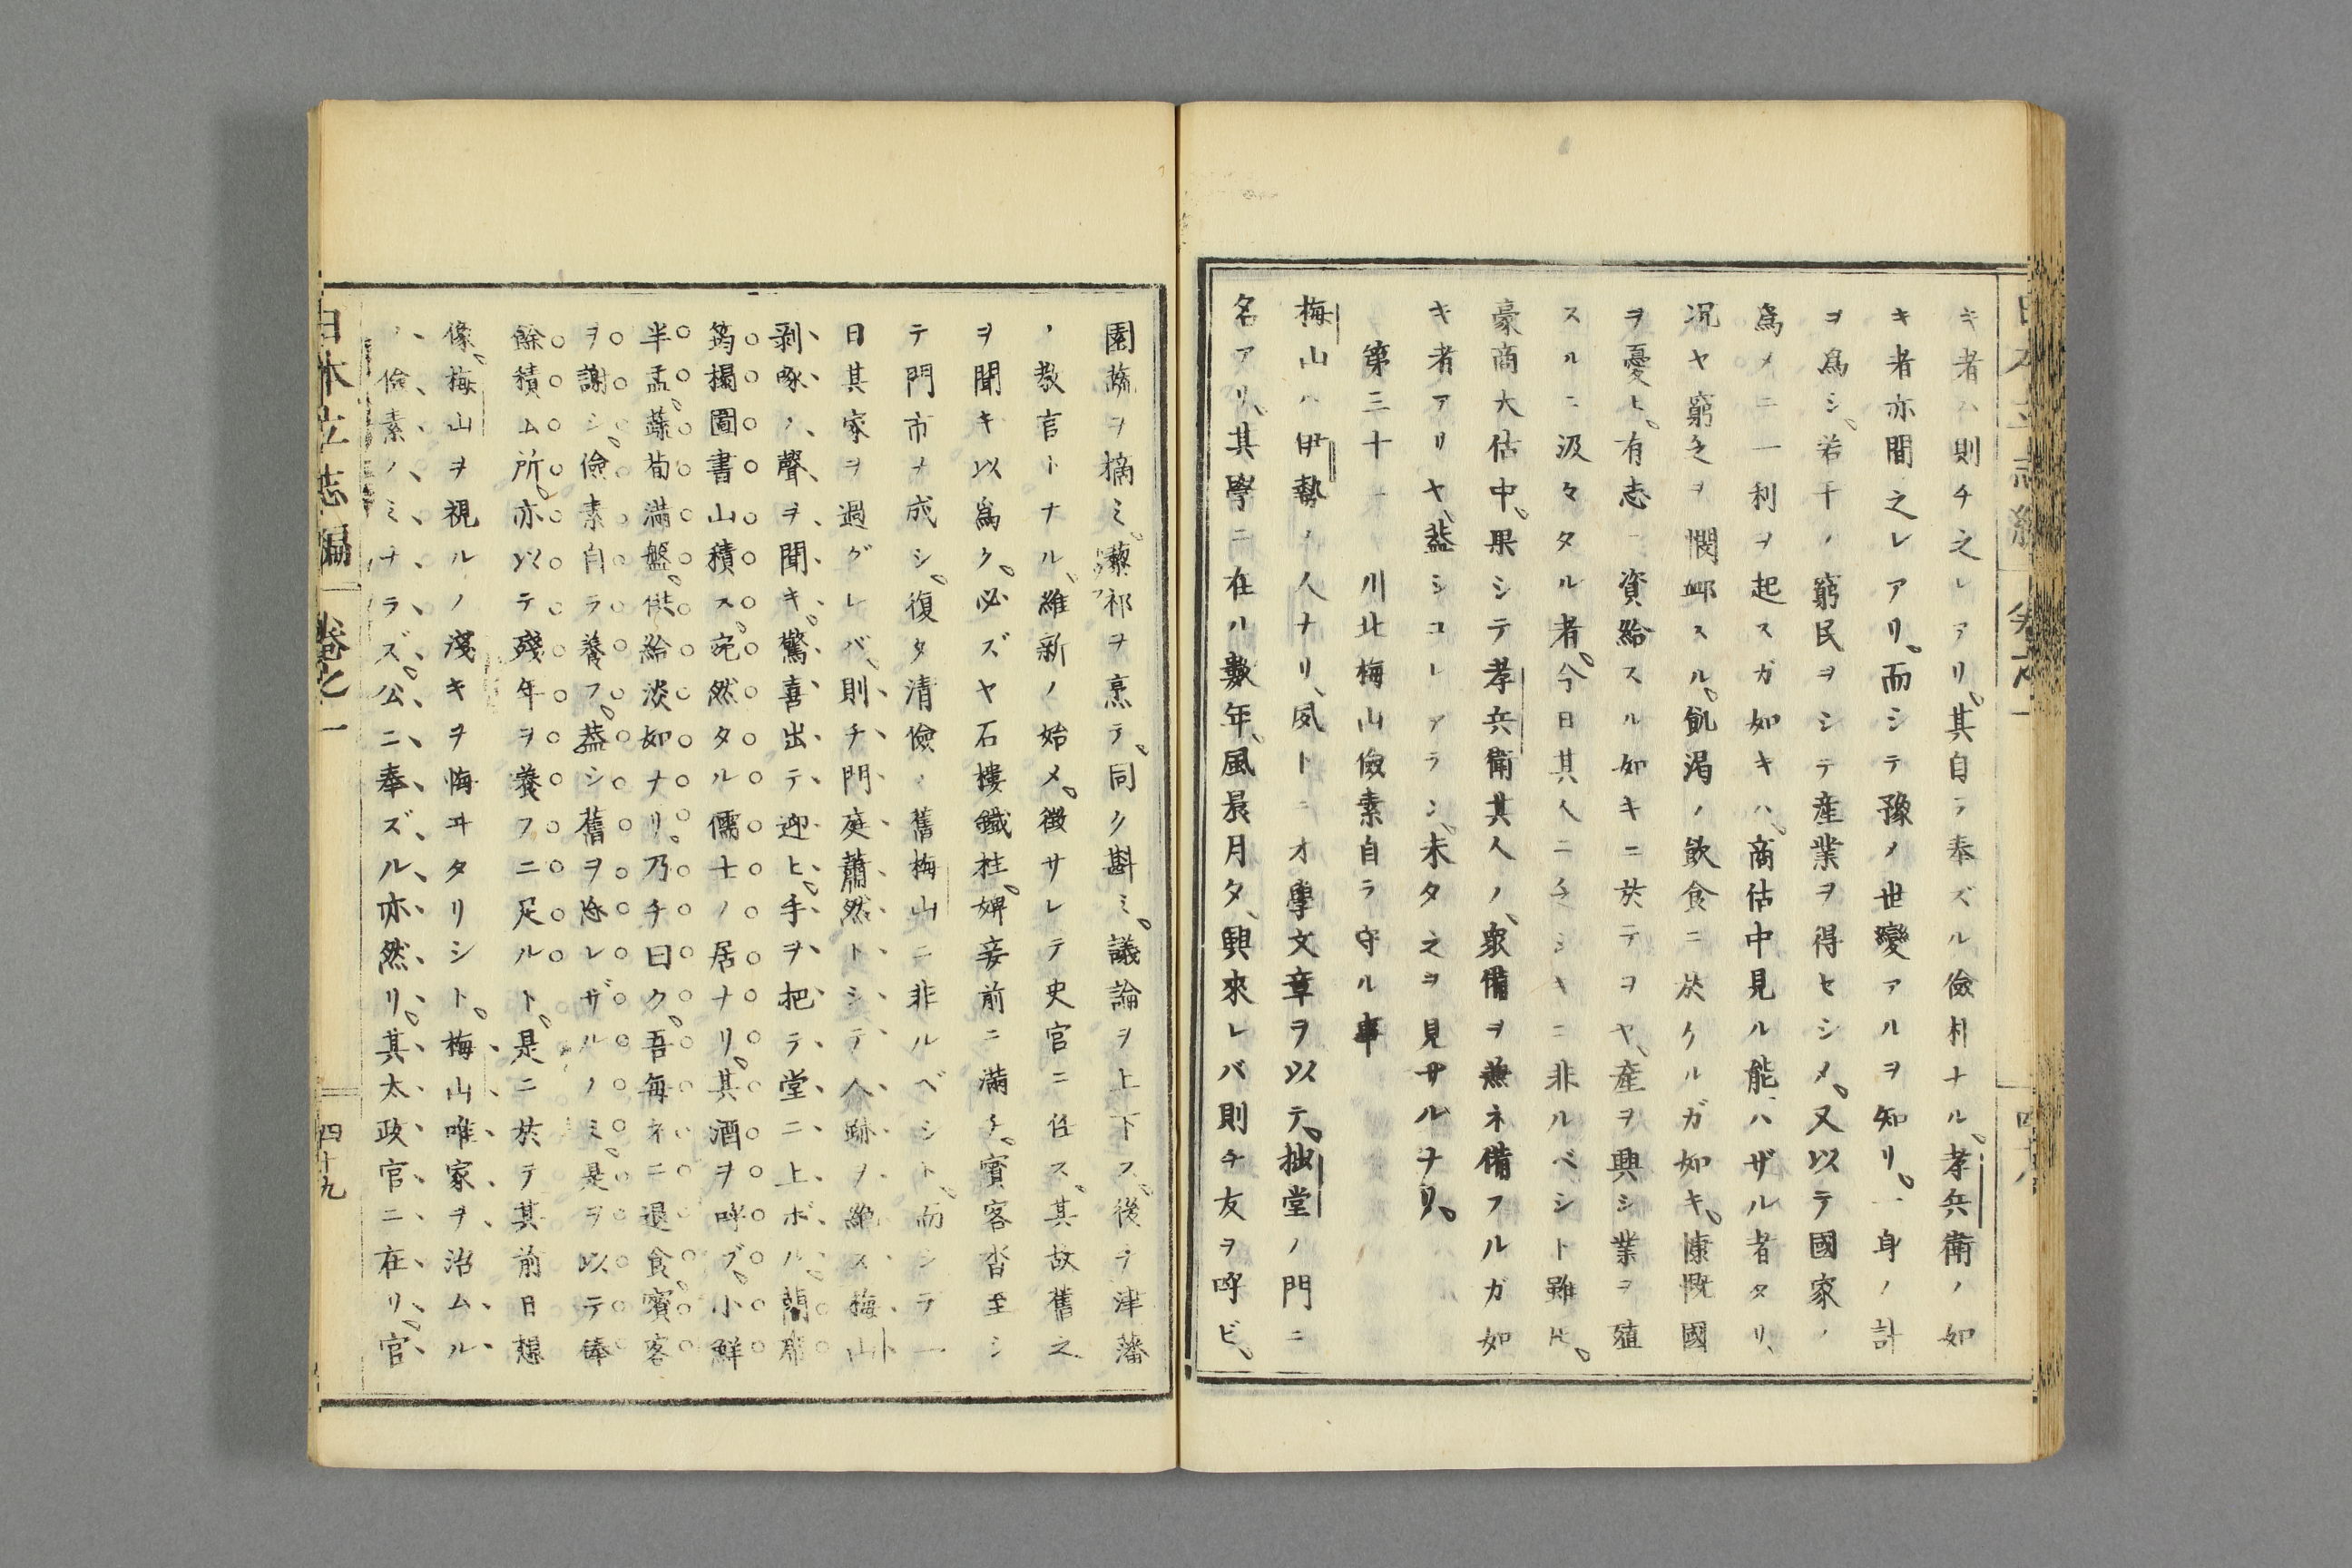 キ者ハ則チ之レアリ、其自ラ奉ズル儉朴ナル、孝兵衛ノ如
キ者亦間之レアリ、而シテ豫メ世變アルヲ知リ、一身ノ計
ヲ爲シ、若干ノ窮民ヲシテ産業ヲ得セシメ、又以テ國家ノ
爲メニ一利ヲ起スガ如キハ、商估中見ル能ハザル者タリ、
况ヤ窮乏ヲ憫䘏スル、飢渇ノ飲食ニ於クルガ如キ、慷慨國
ヲ憂ヒ、有志ニ資給スル如キニ於テヲヤ、産ヲ興シ業ヲ殖
スルニ汲々タル者、今日其人ニ乎シキニ非ルベシト雖𪜈、
豪商大估中、果シテ孝兵衛其人ノ、衆備ヲ兼ネ備フルガ如
キ者アリヤ、葢シコレアラン、未タ之ヲ見サルナリ、
第三十一 川北梅山儉素自ラ守ル事
梅山ハ伊勢ノ人ナリ、夙トニオ學文章ヲ以テ、拙堂ノ門ニ
名アリ、其學ニ在ル數年、風晨月夕、興來レバ則チ友ヲ呼ビ、
日本立志編 卷之一 四十八
園蔬ヲ摘ミ、藜祁ヲ烹テ、同ク斟ミ、議論ヲ上下ス、後チ津藩
ノ教官トナル、維新ノ始メ、徴サレテ史官ニ任ス、其故舊之
ヲ聞キ以爲ク、必ズヤ石樓鐵柱、婢妾前ニ滿チ、賓客沓至シ
テ門市ヲ成シ、復タ清儉ノ舊梅山ニ非ルベシト、而シテ一
日其家ヲ過グレバ、則チ門庭蕭然トシテ人跡ヲ絶ス、梅山
剥啄ノ聲ヲ聞キ、驚喜出テ迎ヒ、手ヲ把ラ堂ニ上ボル、
筠榻圖書山積ス、宛然タル儒士ノ居ナリ、其酒ヲ呼ブ、小鮮
半盂、蔬荀滿盤、供給淡如ナリ、乃チ曰ク、吾毎ネニ退食、賓客
ヲ謝シ、儉素自ラ養フ、葢シ舊ヲ忘レザルノミ、是ヲ以テ俸
餘積ム所、亦以テ殘年ヲ養フニ足ルト、是ニ於テ其前日想
像、梅山ヲ視ルノ淺キヲ悔ヰタリシト、梅山唯家ヲ治ムル
ノ儉素ノミナラズ、公ニ奉ズル亦然リ、其太政官ニ在リ、官
日本立志編 卷之一 四十九